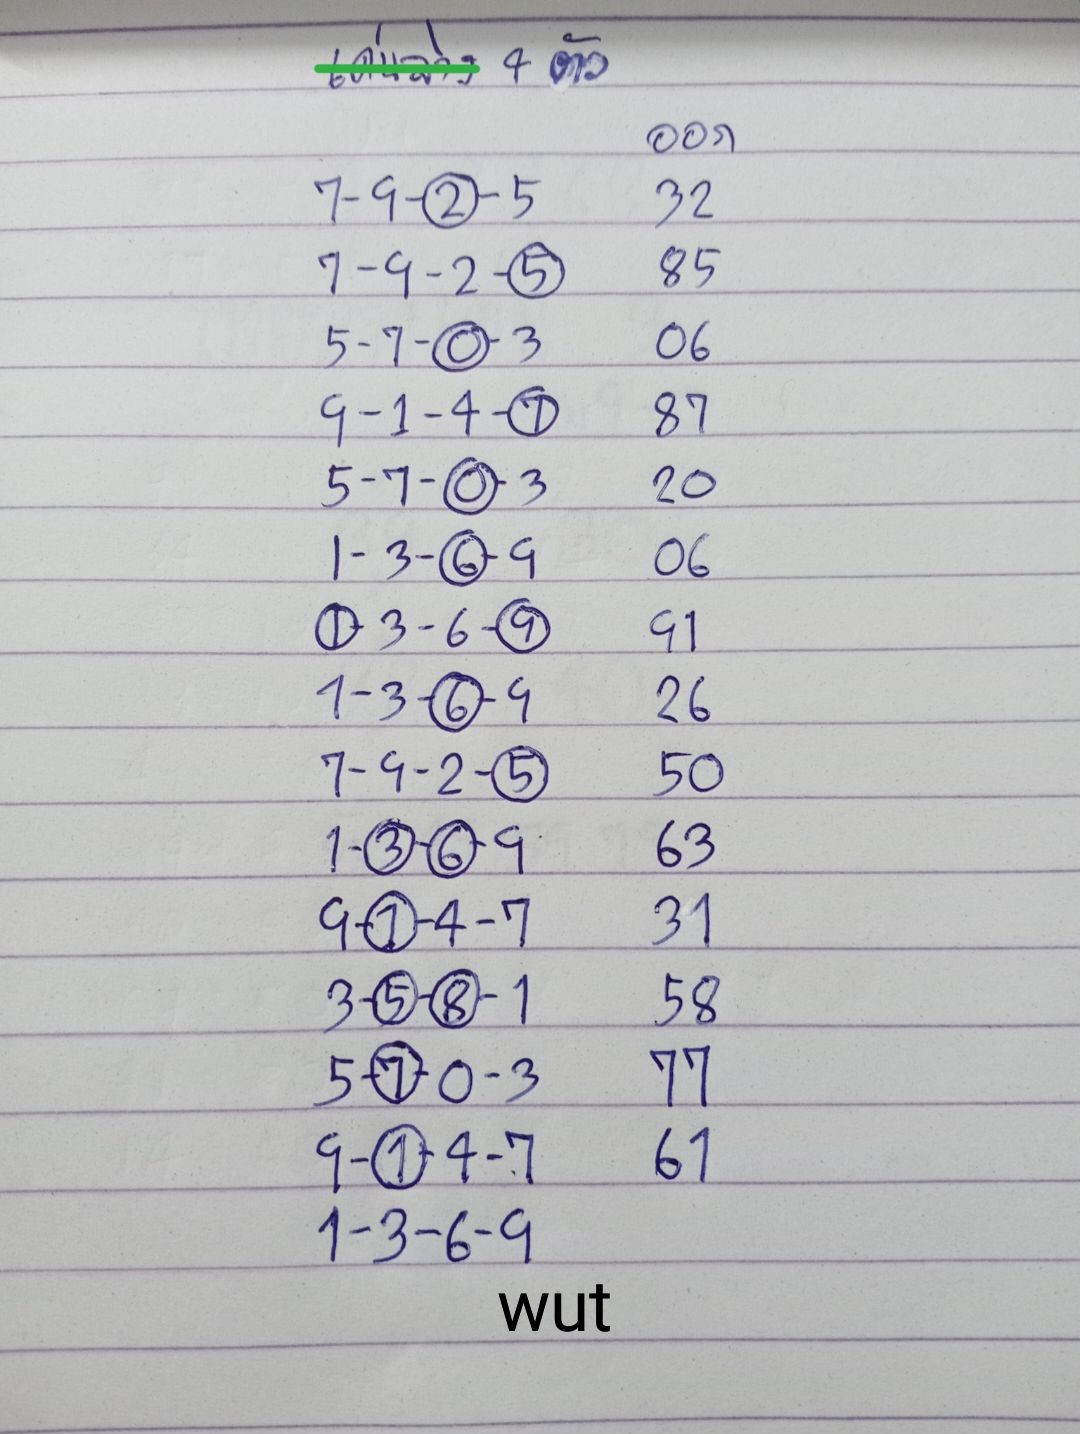 เด่นล่าง 4 ตัว
ออก
7-9-2-5 32
7-9-2-5 85
5-7-0-3 06
9-1-4-7 87
5-7-0-3 20
1-3-6-9 06
1-3-6-9 91
1-3-6-9 26
7-9-2-5 50
1-3-6-9 63
9-1-4-7 31
3-5-8-1 58
5-7-0-3 77
9-1-4-7 61
1-3-6-9
wut